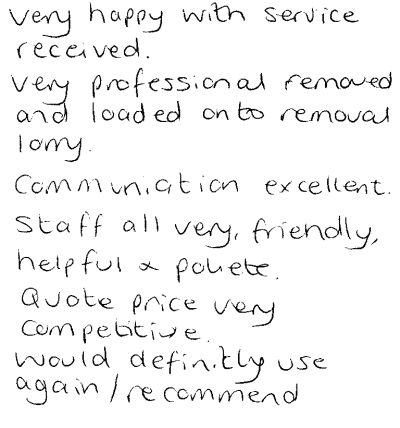 very happy with service
received.
very professional removed
and loaded onto removal
lorry.
Communication excellent.
Staff all very, friendly,
helpful & poliete.
Quote price very
competitive.
would definitly use
again/recommend